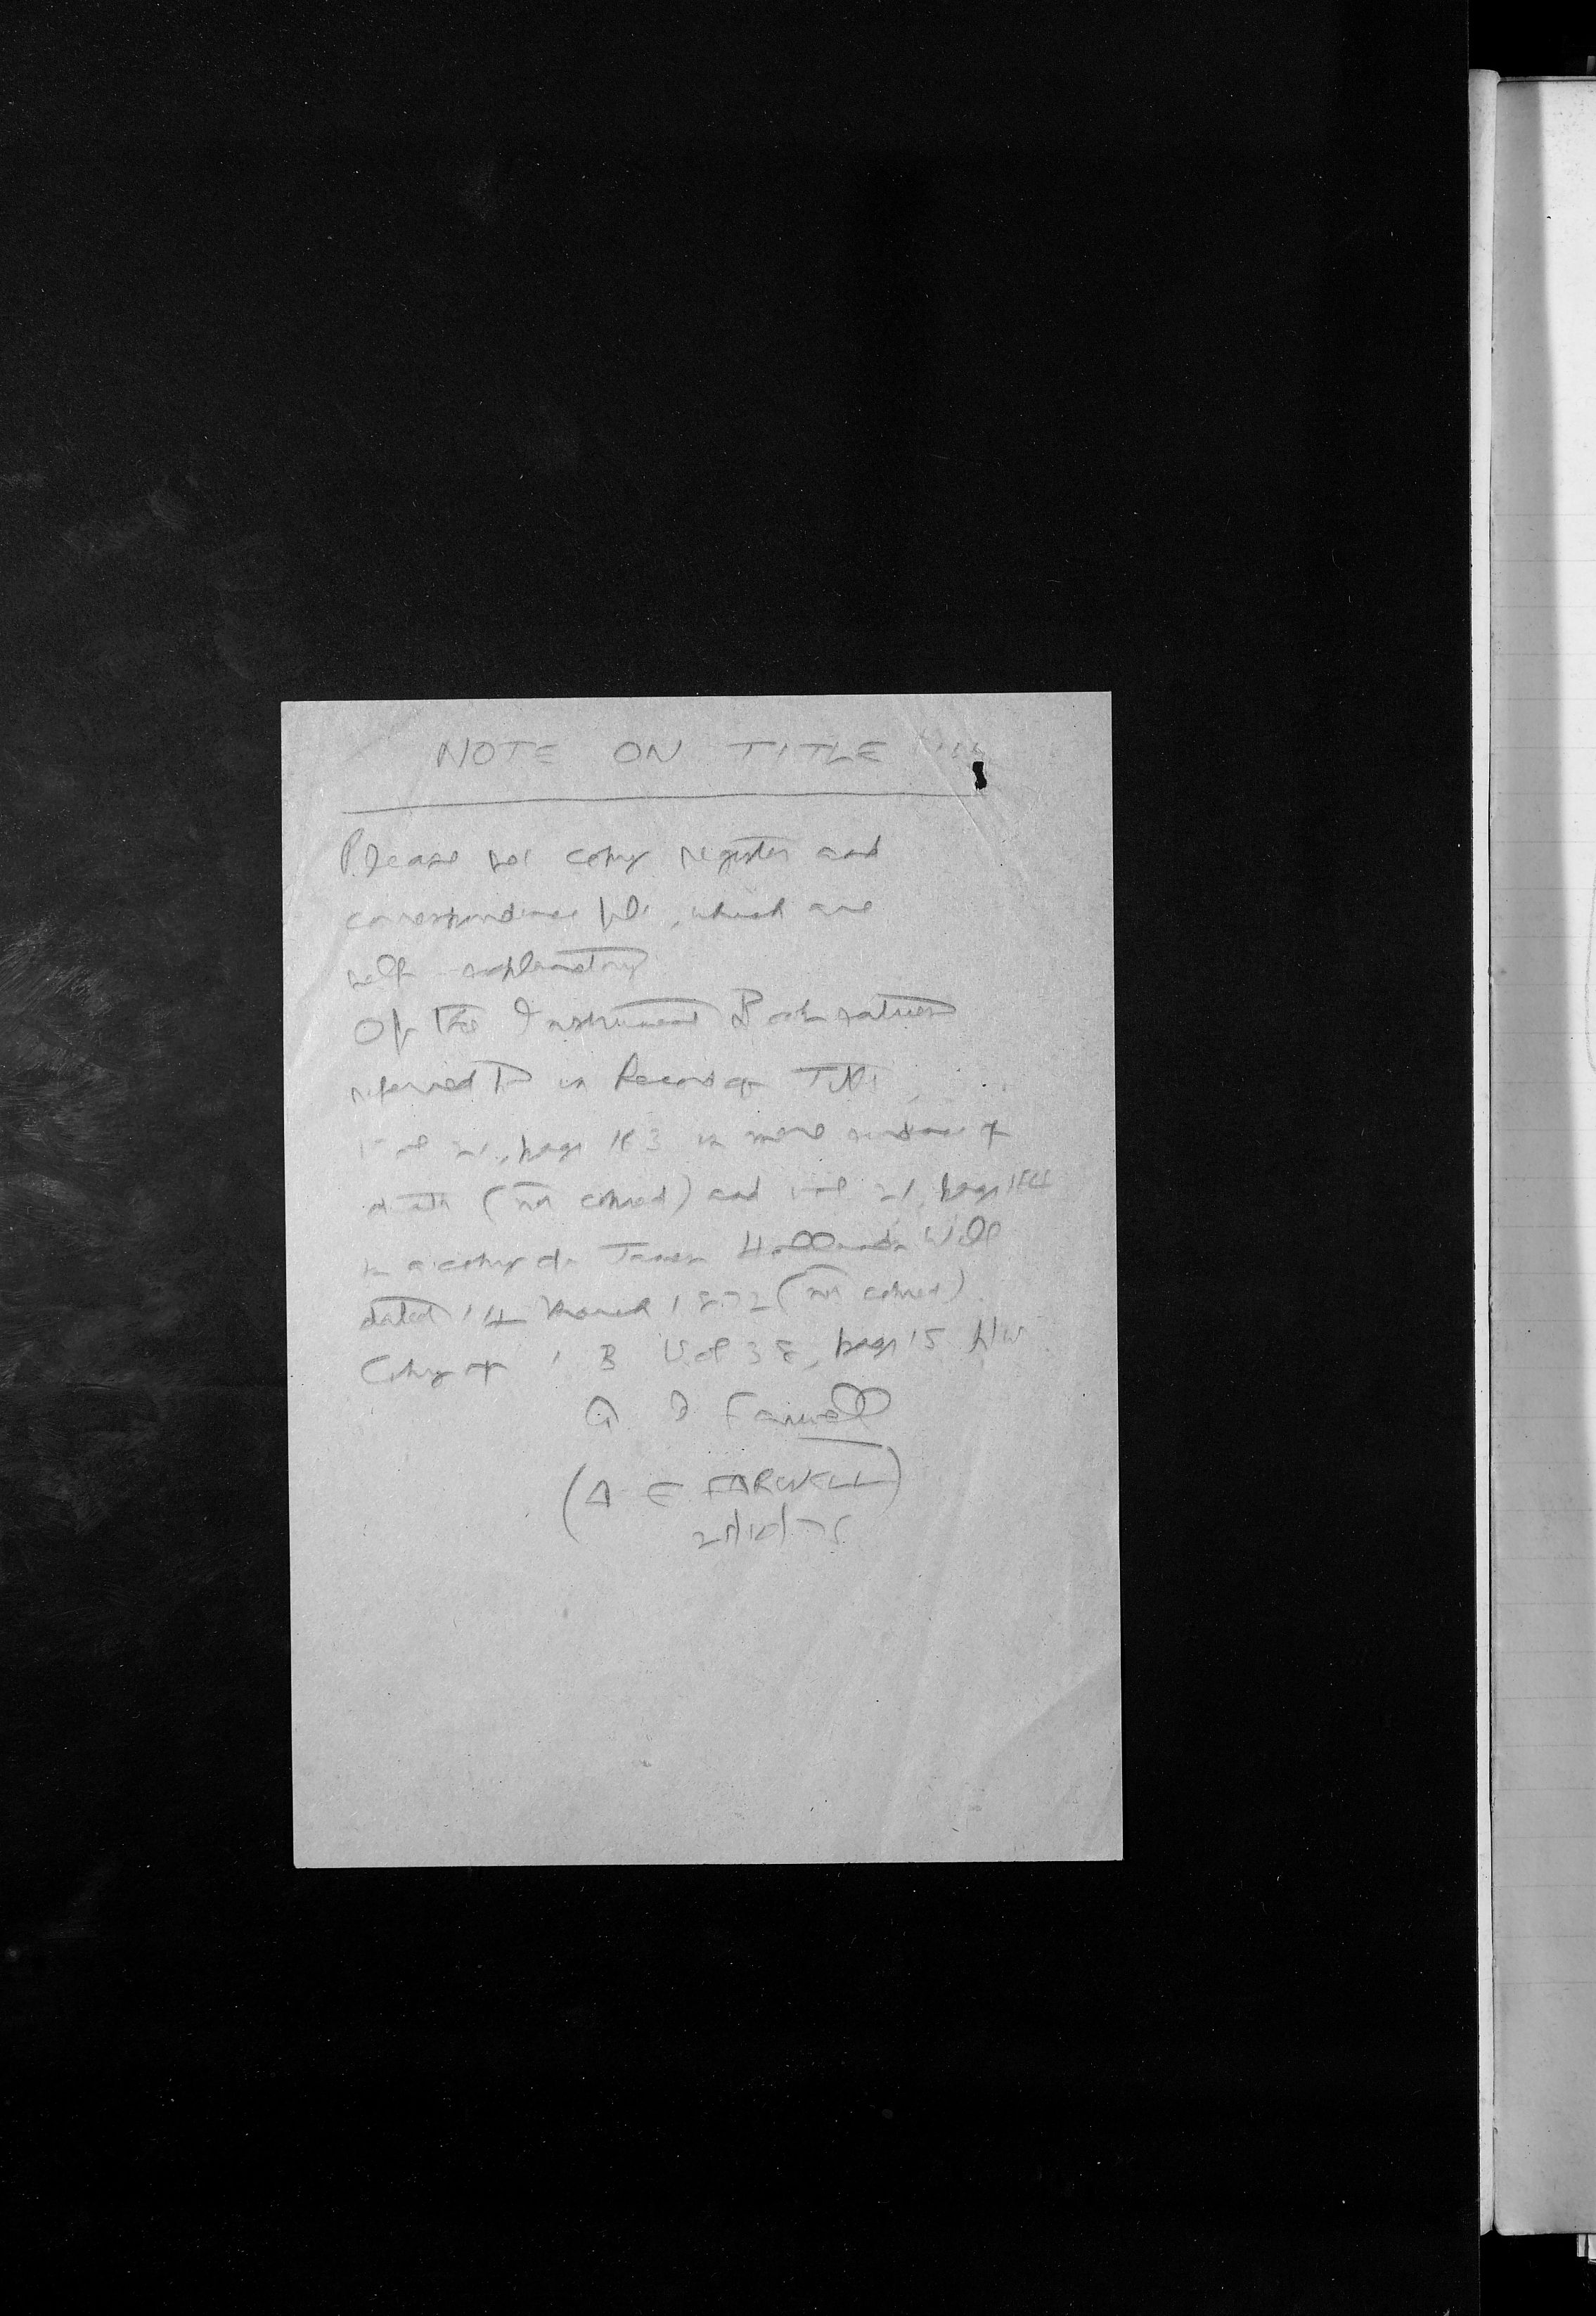 NOTE ON TITLE
Please see copy register and
correspondence file, which are
self explanatory
Of the Instrument Book entries
referred to in Record of Title
Vol 21, page 183 is mere evidence of
death (not copied) and vol 21, page 184
is a copy of James Will
dated 14 March 1872 (not copied).
Copy of I B Vol 38, page 15 h/w
A E Farwell
(A E FARWELL)